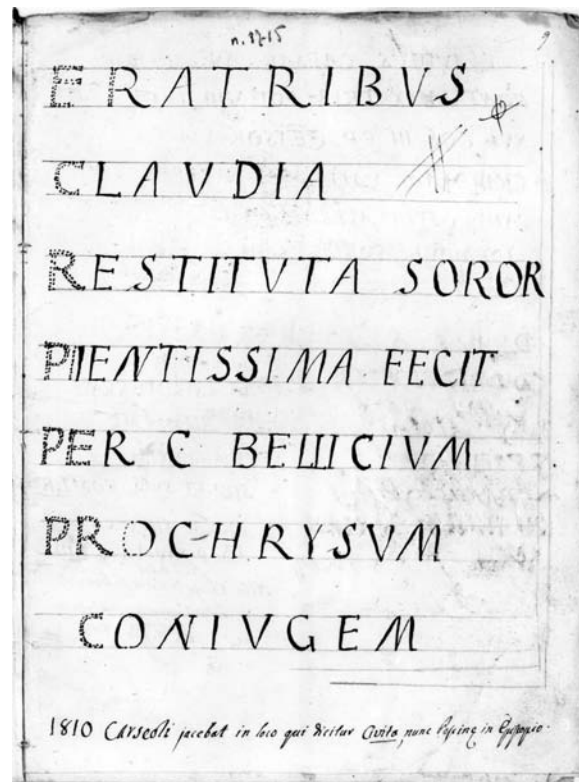 n. 8715
9
ERATRIBVS
CLAVDIA
RESTITVTA SOROR
PIIENTISSIMA EECIT
PER C BELLICIVM
PROCHRYSVM
CONIVGEM
1810 Carseoli jacebat in loco qui dicitur Civita, nunc in